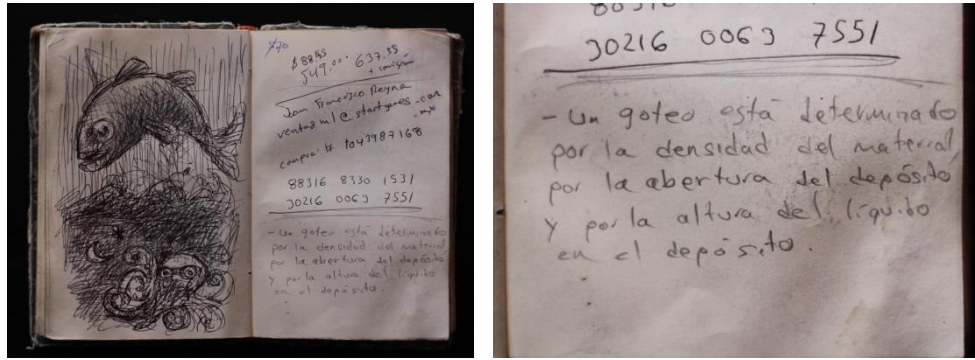 $70
$88.85
549.00 637.35
+ comisión
Juan Francisco Reyna
.com
.mx
compra: #
88316 8330 1531
30216 0063 7551
- Un goteo está determinado
por la densidad del material
por la abertura del depósito
y por la altura del líquido
en el depósito.
30216 0063 7551
- Un goteo está determinado
por la densidad del material,
por la abertura del depósito
y por la altura del líquido
en el depósito.